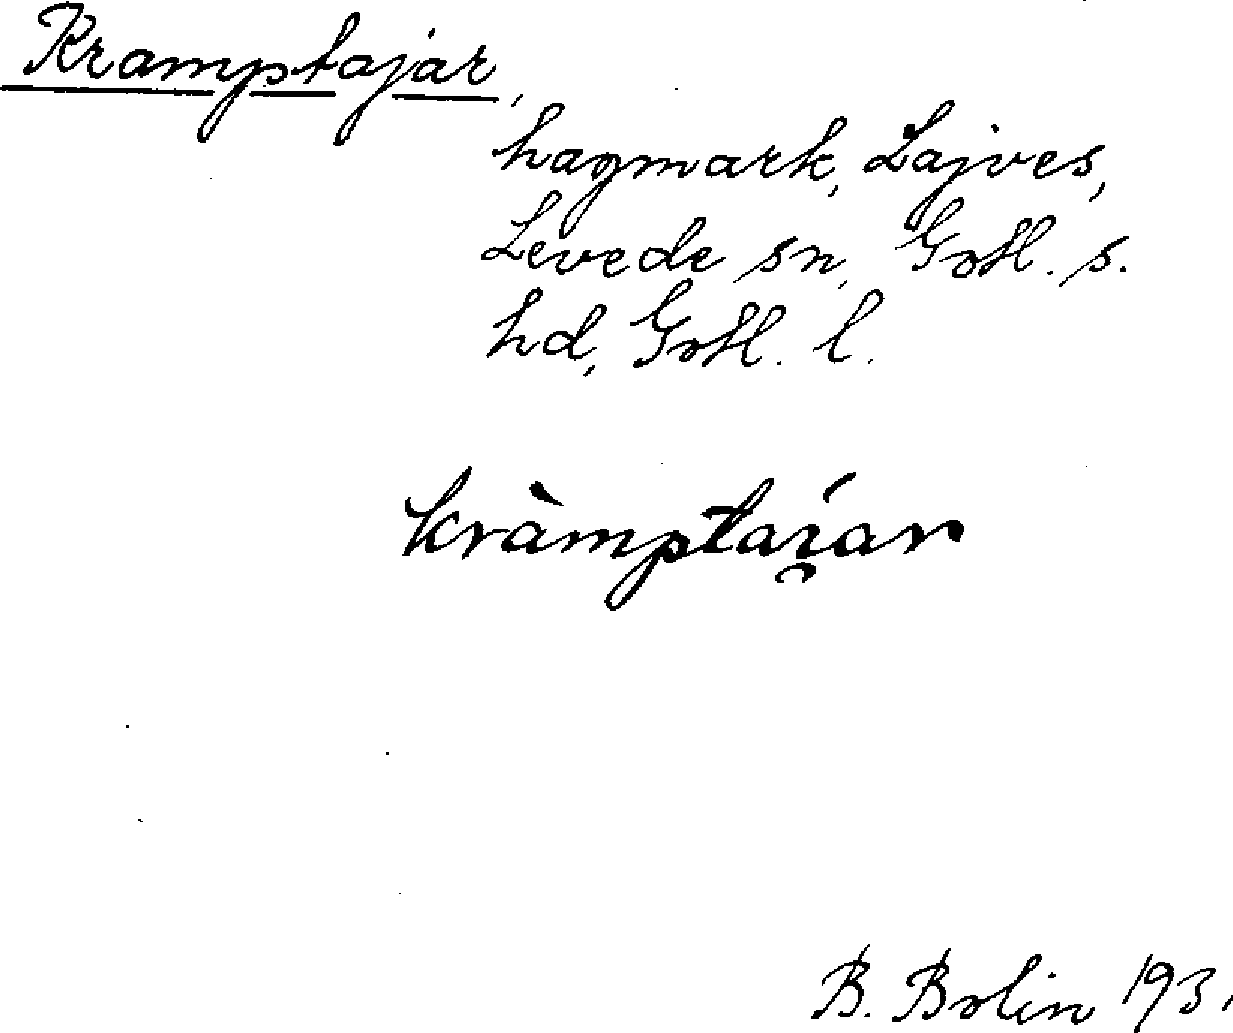 Kramptajar,
hagmark, Lajves,
Levede sn, Gotl. s.
hd, Gotl. l.
kràmptai̯ar
B. Bolin 193